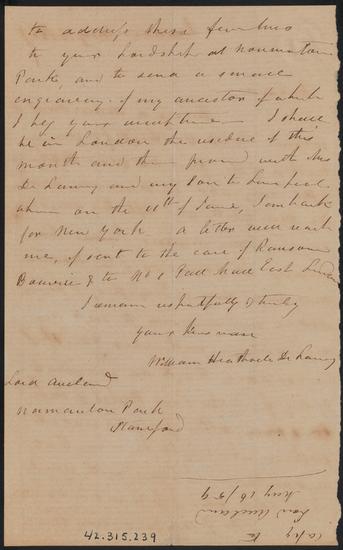 to address these few lines
to your Lordship at Normanton
Park, and to send a small
engraving of my ancestor of which
I beg your acceptance I shall
be in London the residue of this
month and then proceed with Mrs
De Lancey and my Son to Liverpool
when on the 11th of June, I embark
for New York a letter will reach
me, if sent to the care of Ransom
Bouverie & Co No 1 Pall Mall East London
I remain respectfully & truly
your kinsman
William Heathcote De Lancey
Lord Aveland
Normanton Park
Stamford
Copy to
Lord Aveland
May 16/59
42.315.239